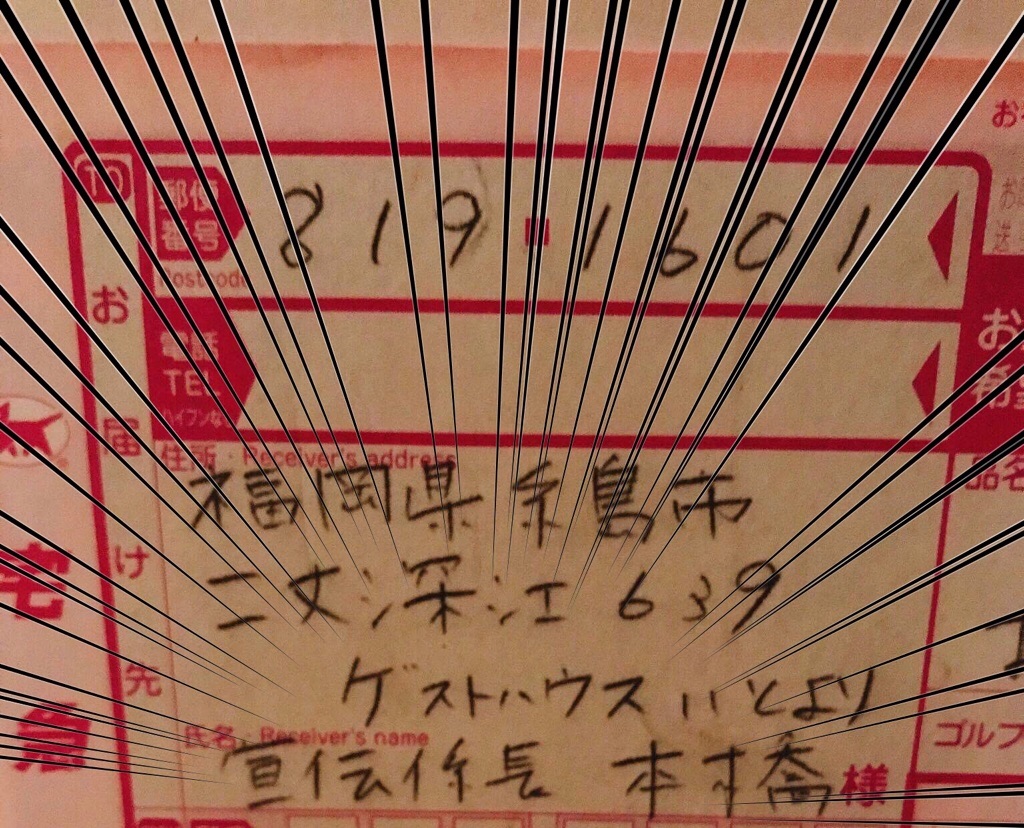 お
TO
郵便
番号
819-1601
Postcode
お
電話
TEL
ハイフンな
お
希望
住所・Receiver's address
品名
福岡県糸島市
二丈深江639
ゲストハウスいとより
氏名・Receiver's name
宣伝係長 本橋様
お届け先
宅急
ゴルフ